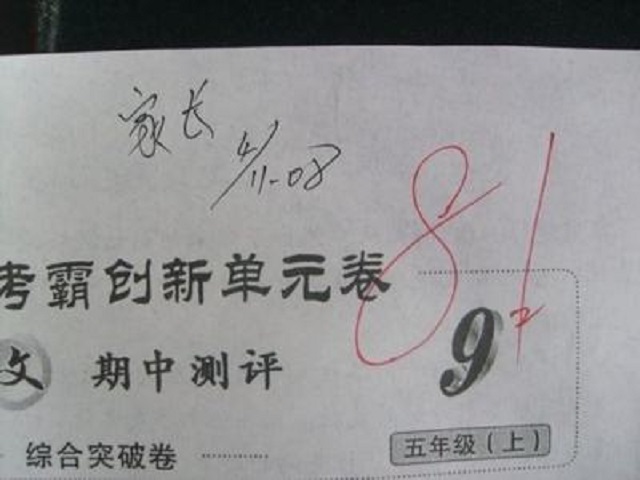 家长
4/11-08
81
考霸创新单元卷
9
文 期中测评
综合突破卷
五年级(上)